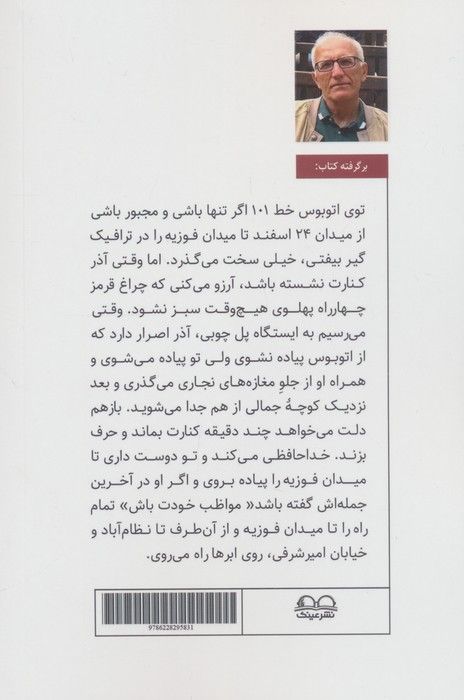 برگرفته کتاب:
توی اتوبوس خط ۱۰۱ اگر تنها باشی و مجبور باشی
از میدان ۲۴ اسفند تا میدان فوزیه را در ترافیک
گیر بیفتی، خیلی سخت می‌گذرد. اما وقتی آذر
کنارت نشسته باشد، آرزو می‌کنی که چراغ قرمز
چهارراه پهلوی هیچ‌وقت سبز نشود. وقتی
می‌رسیم به ایستگاه پل چوبی، آذر اصرار دارد که
از اتوبوس پیاده نشوی ولی تو پیاده می‌شوی و
همراه او از جلوِ مغازه‌های نجاری می‌گذری و بعد
نزدیک کوچهٔ جمالی از هم جدا می‌شوید. بازهم
دلت می‌خواهد چند دقیقه کنارت بماند و حرف
بزند. خداحافظی می‌کند و تو دوست داری تا
میدان فوزیه را پیاده بروی و اگر او در آخرین
جمله‌اش گفته باشد« مواظب خودت باش» تمام
راه را تا میدان فوزیه و از آن‌طرف تا نظام‌آباد و
خیابان امیرشرفی، روی ابرها راه می‌روی.
نشرعینک
9786228295831